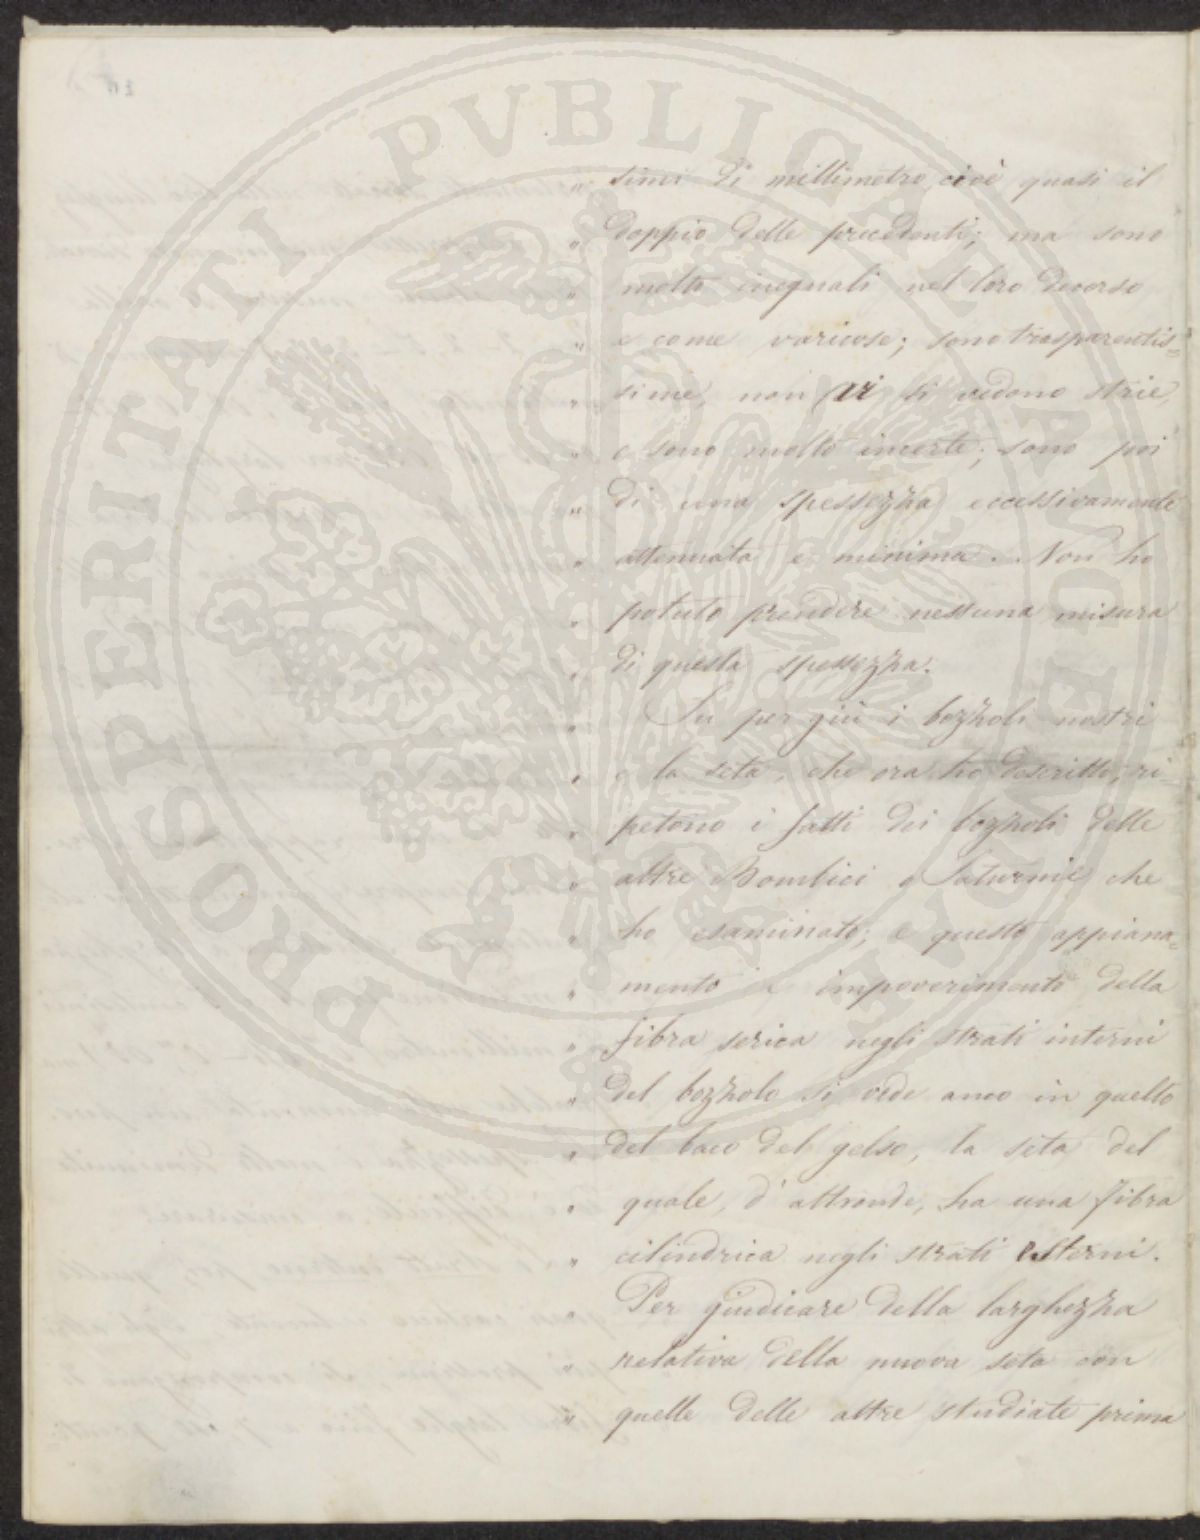 PROSPERITATI PVBLICAE AVGENDAE
„ simi di millimetro, cioè quasi il
„ doppio delle precedenti; ma sono
„ molto ineguali nel loro decorso
„ e come varicose; sono trasparentis=
„ sime, non vi si vedono strie,
„ e sono molto incerte; sono poi
„ di una spessezza eccessivamente
„ attenuata e minima. Non ho
„ potuto prendere nessuna misura
„ di questa spessezza.
„ Su per giù i bozzoli nostri
„ e la seta, che ora ho descritto, ri-
„ petono i fatti dei bozzoli delle
„ altre Bombici e Saturnie che
„ ho esaminato; e questo appiana=
„ mento e impoverimento della
„ fibra serica negli strati interni
„ del bozzolo si vede anco in quello
„ del baco del gelso, la seta del
„ quale, d'altronde, ha una fibra
„ cilindrica negli strati esterni.
„ Per giudicare della larghezza
„ relativa della nuova seta con
„ quelle delle altre studiate prima